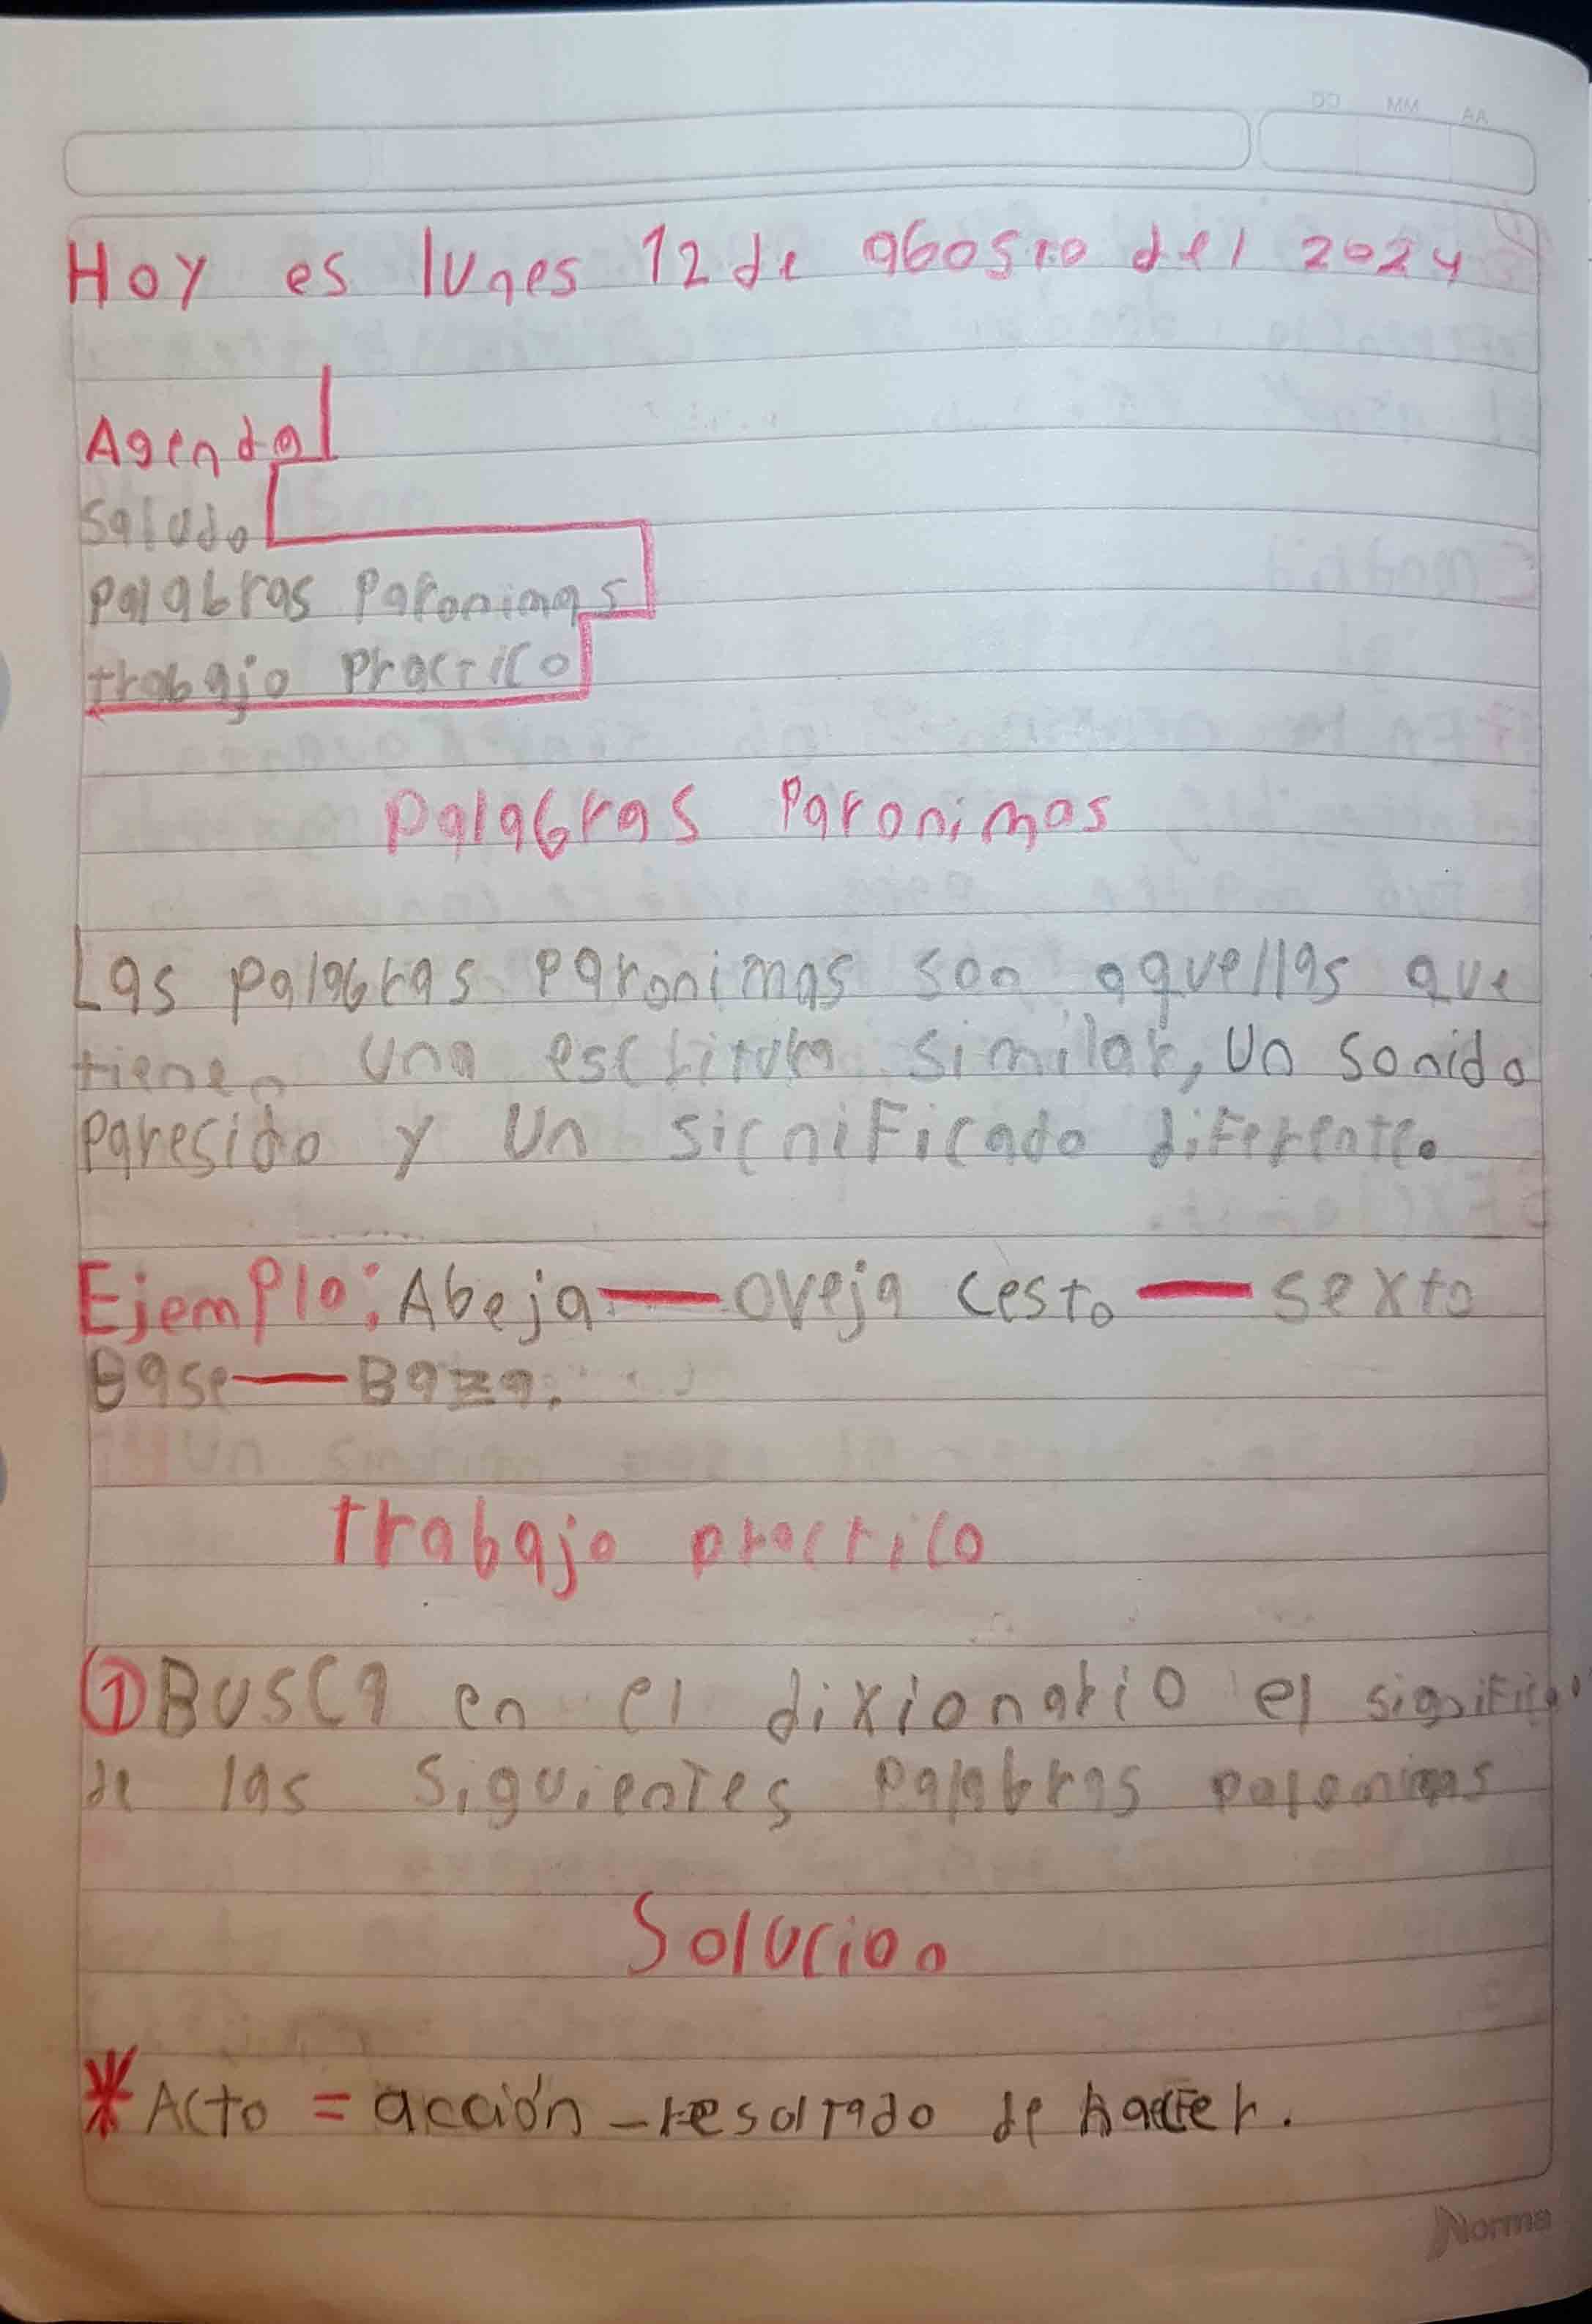 CC MM AA
Hoy es lunes 12 de abosto del 2024
Agenda
Saludo
palabras Paronimas
trabajo Practico
Palabras Paronimas
Las palabras Paronimas son aquellas que
tienen una escritura similar, Un sonido
Paresido y Un sicniFicado diFerente.
EjemPlo: Abeja — oveja cesto — sexto
Base — Baza.
trabajo practico
1 Busca en el dixionario el
de las siguientes Palabras paronimas
Solucion
* Acto = acción - resoltado de hacer.
Norma